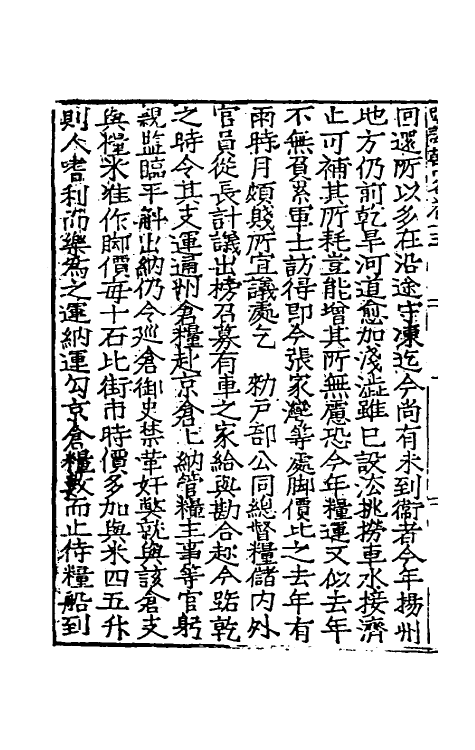 回還所以多在沿途守凍迄今尚有未到衞者今年揚州
地方仍前乾旱河道愈加淺澁雖已設法挑撈車水接濟
止可補其所耗豈能增其所無慮恐今年糧運又似去年
不無負累軍士訪得即今張家灣等處脚價比之去年有
雨時月頗賤所宜議處乞 勑戸部公同總督糧儲内外
官員從長計議出榜召募有車之家給與勘合趂今路乾
之時令其支運通州倉糧赴京倉上納管糧主事等官躬
親監臨平斛出納仍令廵倉御史禁革奸獘就與該倉支
與糧米准作脚價毎十石比街市時價多加與米四五升
則人嗜利而樂爲之運納運勾京倉糧數而止待糧船到